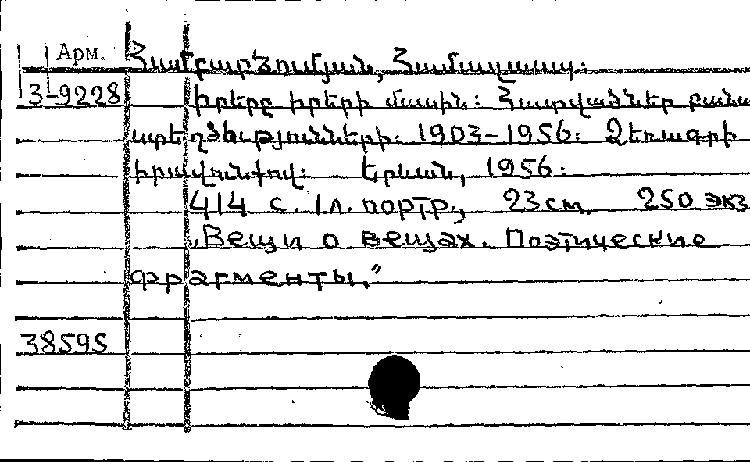 Арм. Համբարձումյան, Համազասպ։
3-9228 Իրերը իրերի մասին։ Հատվածներ բանա
ստեղծությունների։ 1903-1956։ Ձեռագրի
իրավունքով։ Երևան, 1956։
414 с. 1л. портр., 23см 250 экз
„Вещи о вещах. Поэтические
фрагменты.”
38595